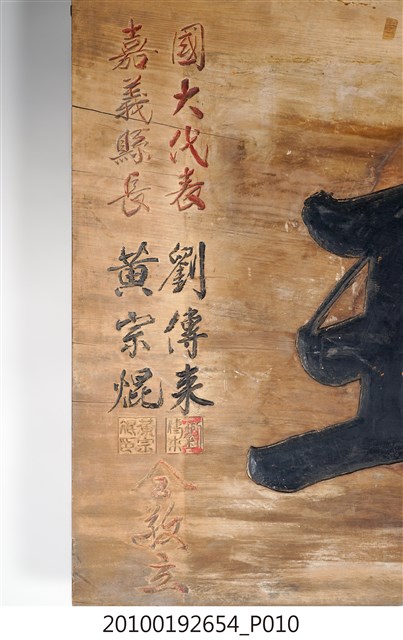 國大代表 劉傳來
嘉義縣長 黃宗焜
仝敬立
20100192654_P010